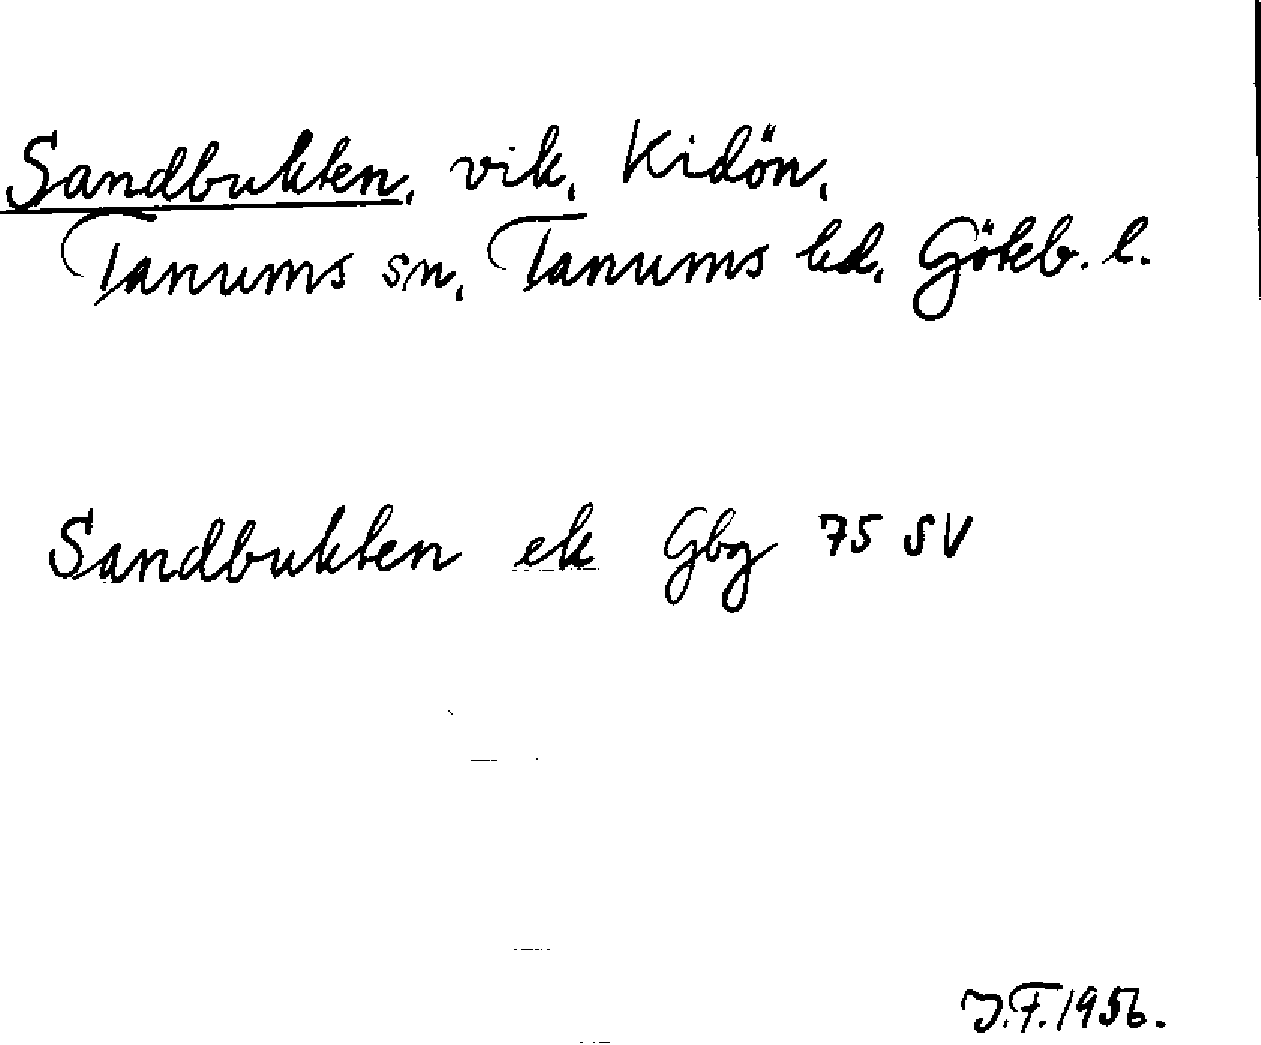 Sandbukten, vik, Kidön,
Tanums sn, Tanums hd, Göteb. l.
Sandbukten ek Gbg 75 SV
J.F. 1956.